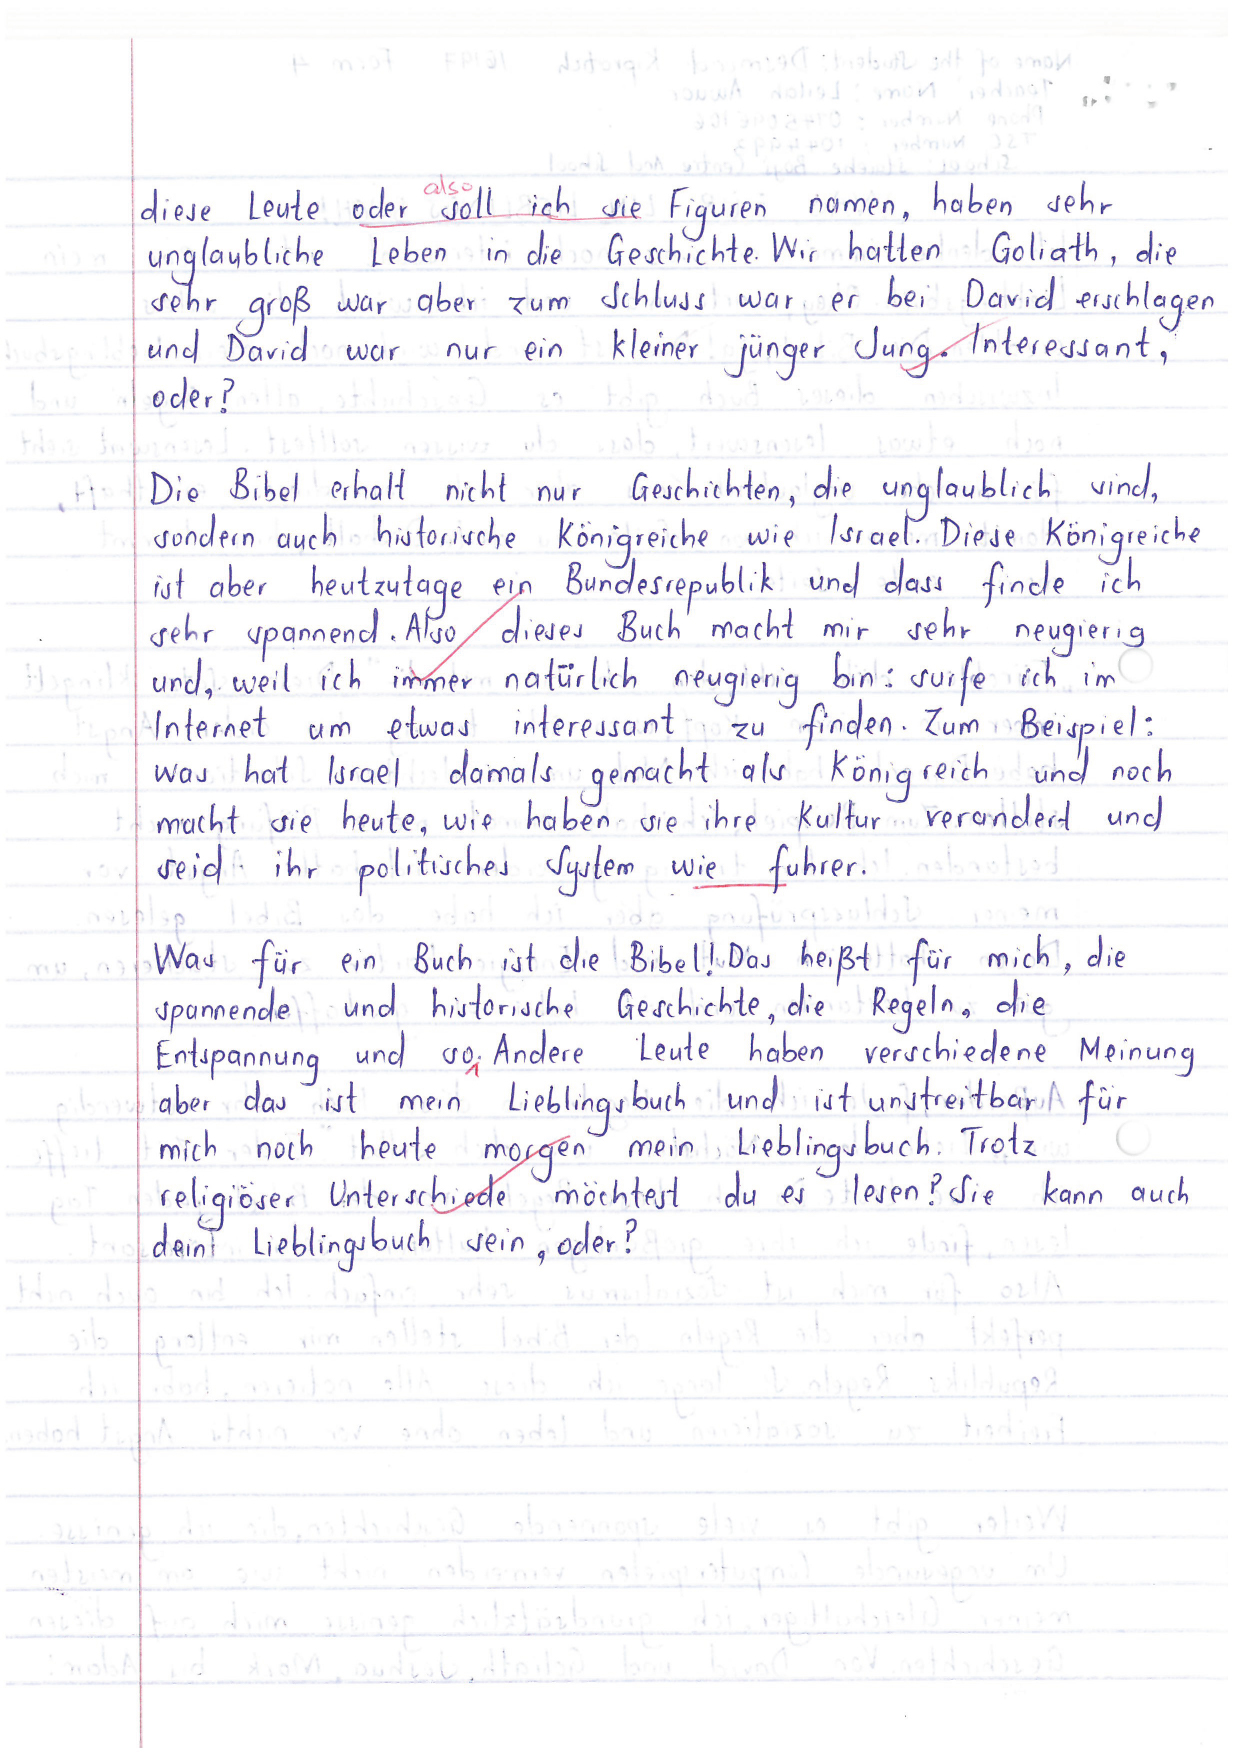 also
diese Leute oder soll ich sie Figuren namen, haben sehr
unglaubliche Leben in die Geschichte. Wir hatten Goliath, die
sehr groß war aber zum Schluss war er bei David erschlagen
und David war nur ein kleiner jünger Jung. Interessant,
oder?
Die Bibel erhalt nicht nur Geschichten, die unglaublich sind,
sondern auch historische Königreiche wie Israel. Diese Königreiche
ist aber heutzutage ein Bundesrepublik und dass finde ich
sehr spannend. Also dieses Buch macht mir sehr neugierig
und, weil ich immer natürlich neugierig bin: surfe ich im
Internet um etwas interessant zu finden. Zum Beispiel:
was hat Israel damals gemacht als Königreich und noch
macht sie heute, wie haben sie ihre Kultur verandert und
seid ihr politisches System wie fuhrer.
Was für ein Buch ist die Bibel! Das heißt für mich, die
spannende und historische Geschichte, die Regeln, die
Entspannung und so. Andere Leute haben verschiedene Meinung
aber das ist mein Lieblingsbuch und ist unstreitbar für
mich noch heute morgen mein Lieblingsbuch. Trotz
religiöser Unterschiede möchtest du es lesen? Sie kann auch
dein Lieblingsbuch sein, oder?